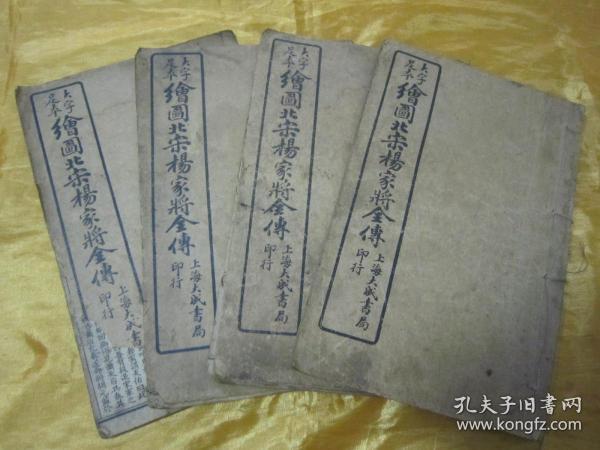 大字
足本
繪圖北宋楊家將全傳
上海大成書
印行
大字
足本
繪圖北宋楊家將全傳
上海大成書局
印行
大字
足本
繪圖北宋楊家將全傳
上海大成書局
印行
大字
足本
繪圖北宋楊家將全傳
上海大成書局
印行
孔夫子旧书网
www.kongfz.com